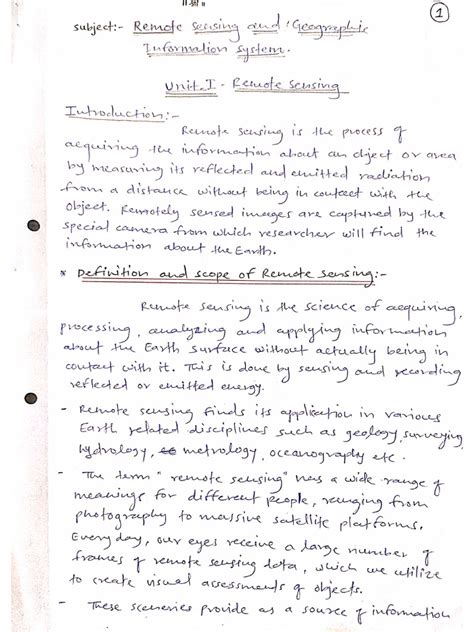 1
subject:- Remote sensing and Geographic
Information system.
Unit.I - Remote sensing
Introduction:-
Remote sensing is the process of
acquiring the information about an object or area
by measuring its reflected and emitted radiation
from a distance without being in contact with the
object. Remotely sensed images are captured by the
special camera from which researcher will find the
information about the Earth.
* Definition and scope of Remote sensing:-
Remote sensing is the science of acquiring,
processing, analyzing and applying information
about the Earth surface without actually being in
contact with it. This is done by sensing and recording
reflected or emitted energy.
- Remote sensing finds its application in various
Earth related disciplines such as geology, surveying
hydrology, metrology, oceanography etc.
- The term "remote sensing" has a wide range of
meanings for different people, ranging from
photography to massive satellite platforms.
Every day, our eyes receive a large number of
frames of remote sensing data, which we utilize
to create visual assessments of objects.
- These sceneries provide as a source of information